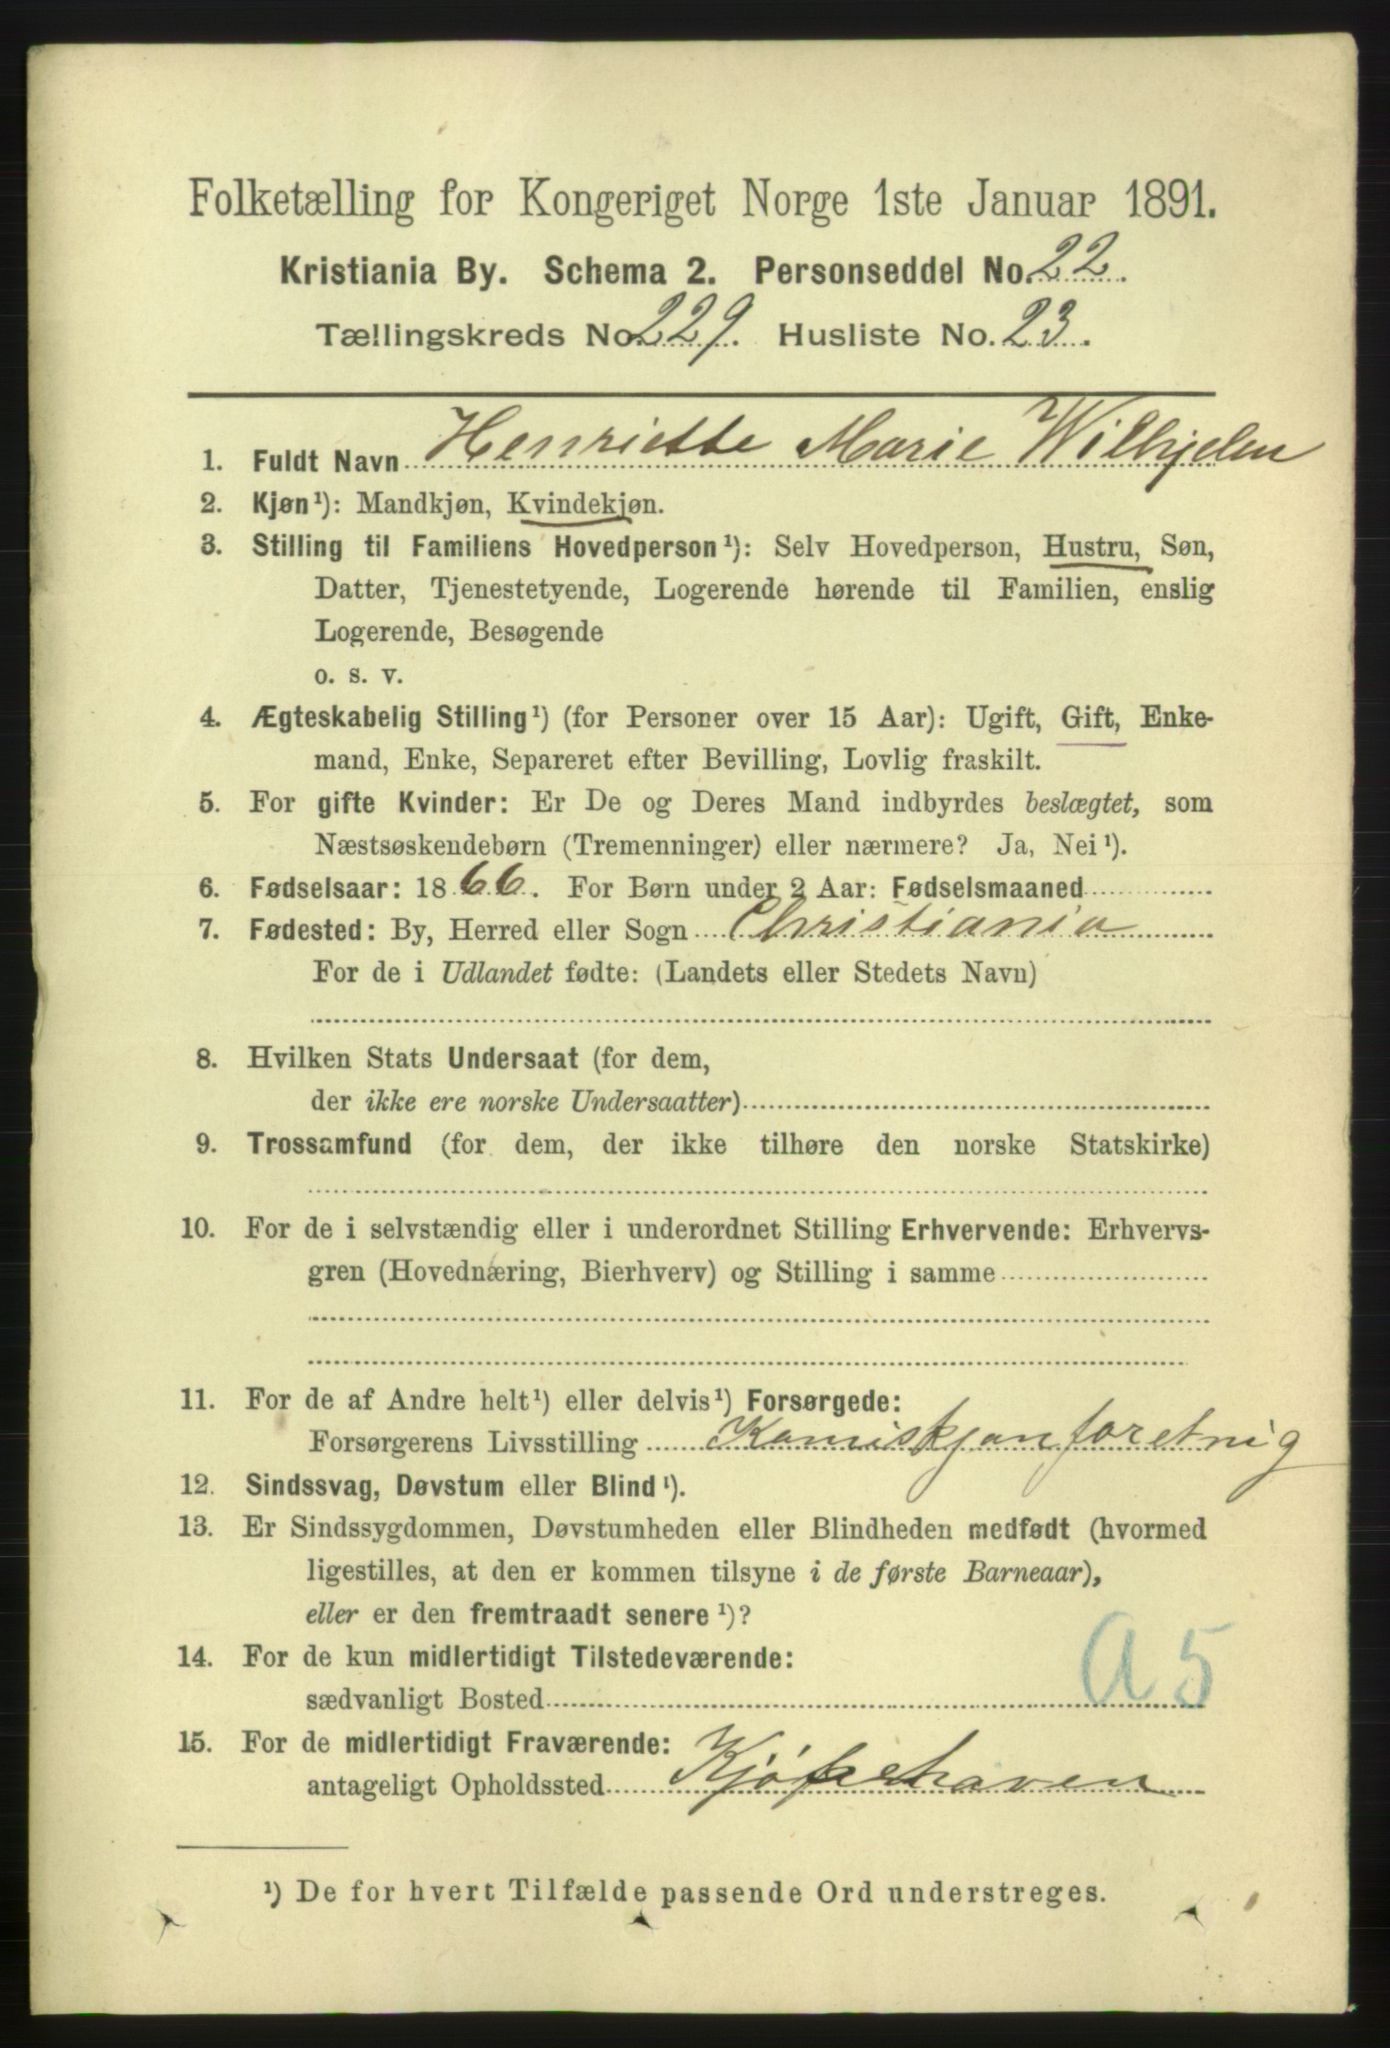 Folketælling for Kongeriget Norge 1ste Januar 1891.
Kristiania By. Schema 2. Personseddel No. 22.
Tællingskreds No. 229. Husliste No. 23.
1. Fuldt Navn Henriette Marie Wilhjelm
2. Kjøn¹): Mandkjøn, Kvindekjøn.
3. Stilling til Familiens Hovedperson¹): Selv Hovedperson, Hustru, Søn,
Datter, Tjenestetyende, Logerende hørende til Familien, enslig
Logerende, Besøgende
o. s. v.
4. Ægteskabelig Stilling¹) (for Personer over 15 Aar): Ugift, Gift, Enke-
mand, Enke, Separeret efter Bevilling, Lovlig fraskilt.
5. For gifte Kvinder: Er De og Deres Mand indbyrdes beslægtet, som
Næstsøskendebørn (Tremenninger) eller nærmere? Ja, Nei¹).
6. Fødselsaar: 1866. For Børn under 2 Aar: Fødselsmaaned
7. Fødested: By, Herred eller Sogn Christiania
For de i Udlandet fødte: (Landets eller Stedets Navn)
8. Hvilken Stats Undersaat (for dem,
der ikke ere norske Undersaatter)
9. Trossamfund (for dem, der ikke tilhøre den norske Statskirke)
10. For de i selvstændig eller i underordnet Stilling Erhvervende: Erhvervs-
gren (Hovednæring, Bierhverv) og Stilling i samme
11. For de af Andre helt¹) eller delvis¹) Forsørgede:
Forsørgerens Livsstilling Komiskjonforetnig
12. Sindssvag, Døvstum eller Blind¹).
13. Er Sindssygdommen, Døvstumheden eller Blindheden medfødt (hvormed
ligestilles, at den er kommen tilsyne i de første Barneaar),
eller er den fremtraadt senere¹)?
14. For de kun midlertidigt Tilstedeværende:
sædvanligt Bosted
A 5
15. For de midlertidigt Fraværende:
antageligt Opholdssted Kjøbenhaven
¹) De for hvert Tilfælde passende Ord understreges.